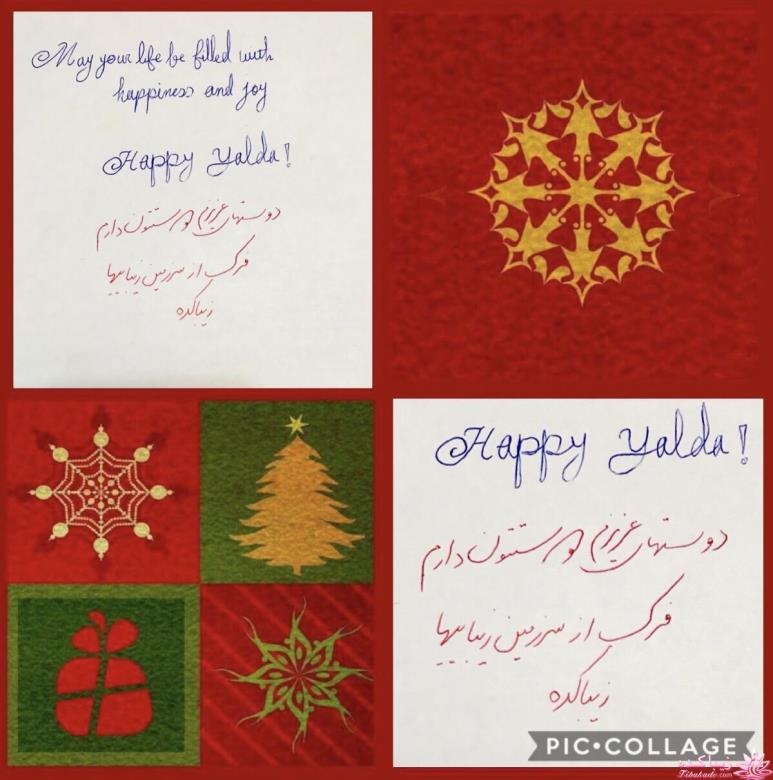 May your life be filled with
happiness and joy
Happy Yalda!
دوستهای عزیزم دوستتون دارم
فرک از سرزمین زیباییها
زیباکده
Happy Yalda!
دوستهای عزیزم دوستتون دارم
فرک از سرزمین زیباییها
زیباکده
PIC•COLLAGE
زیباکده
Zibakade.com